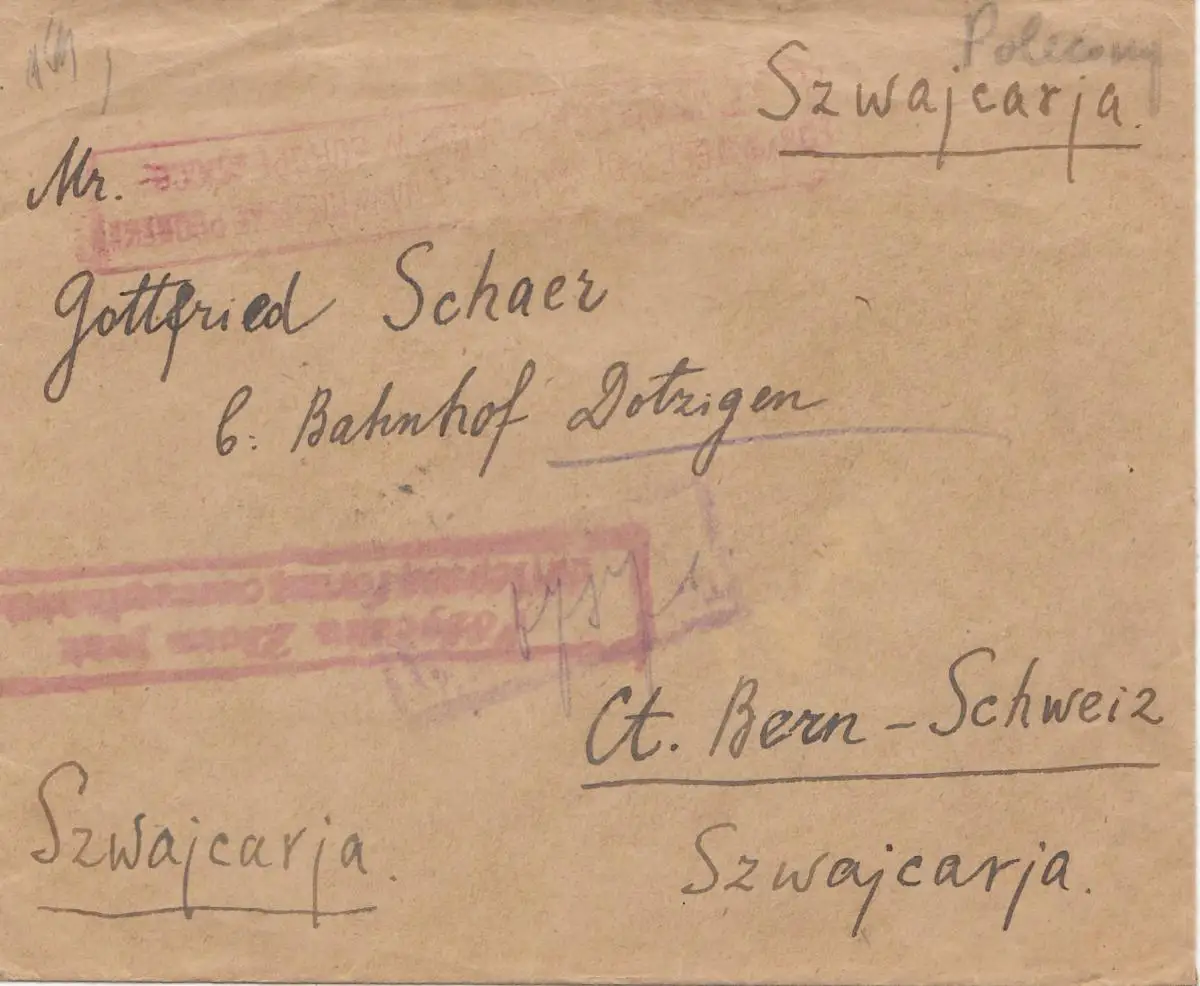 Polecony
Szwajcarja.
Mr.
Gottfried Schaer
b. Bahnhof Dotzigen
Pożyczka Złota jest
Ct. Bern – Schweiz
Szwajcarja.
Szwajcarja.